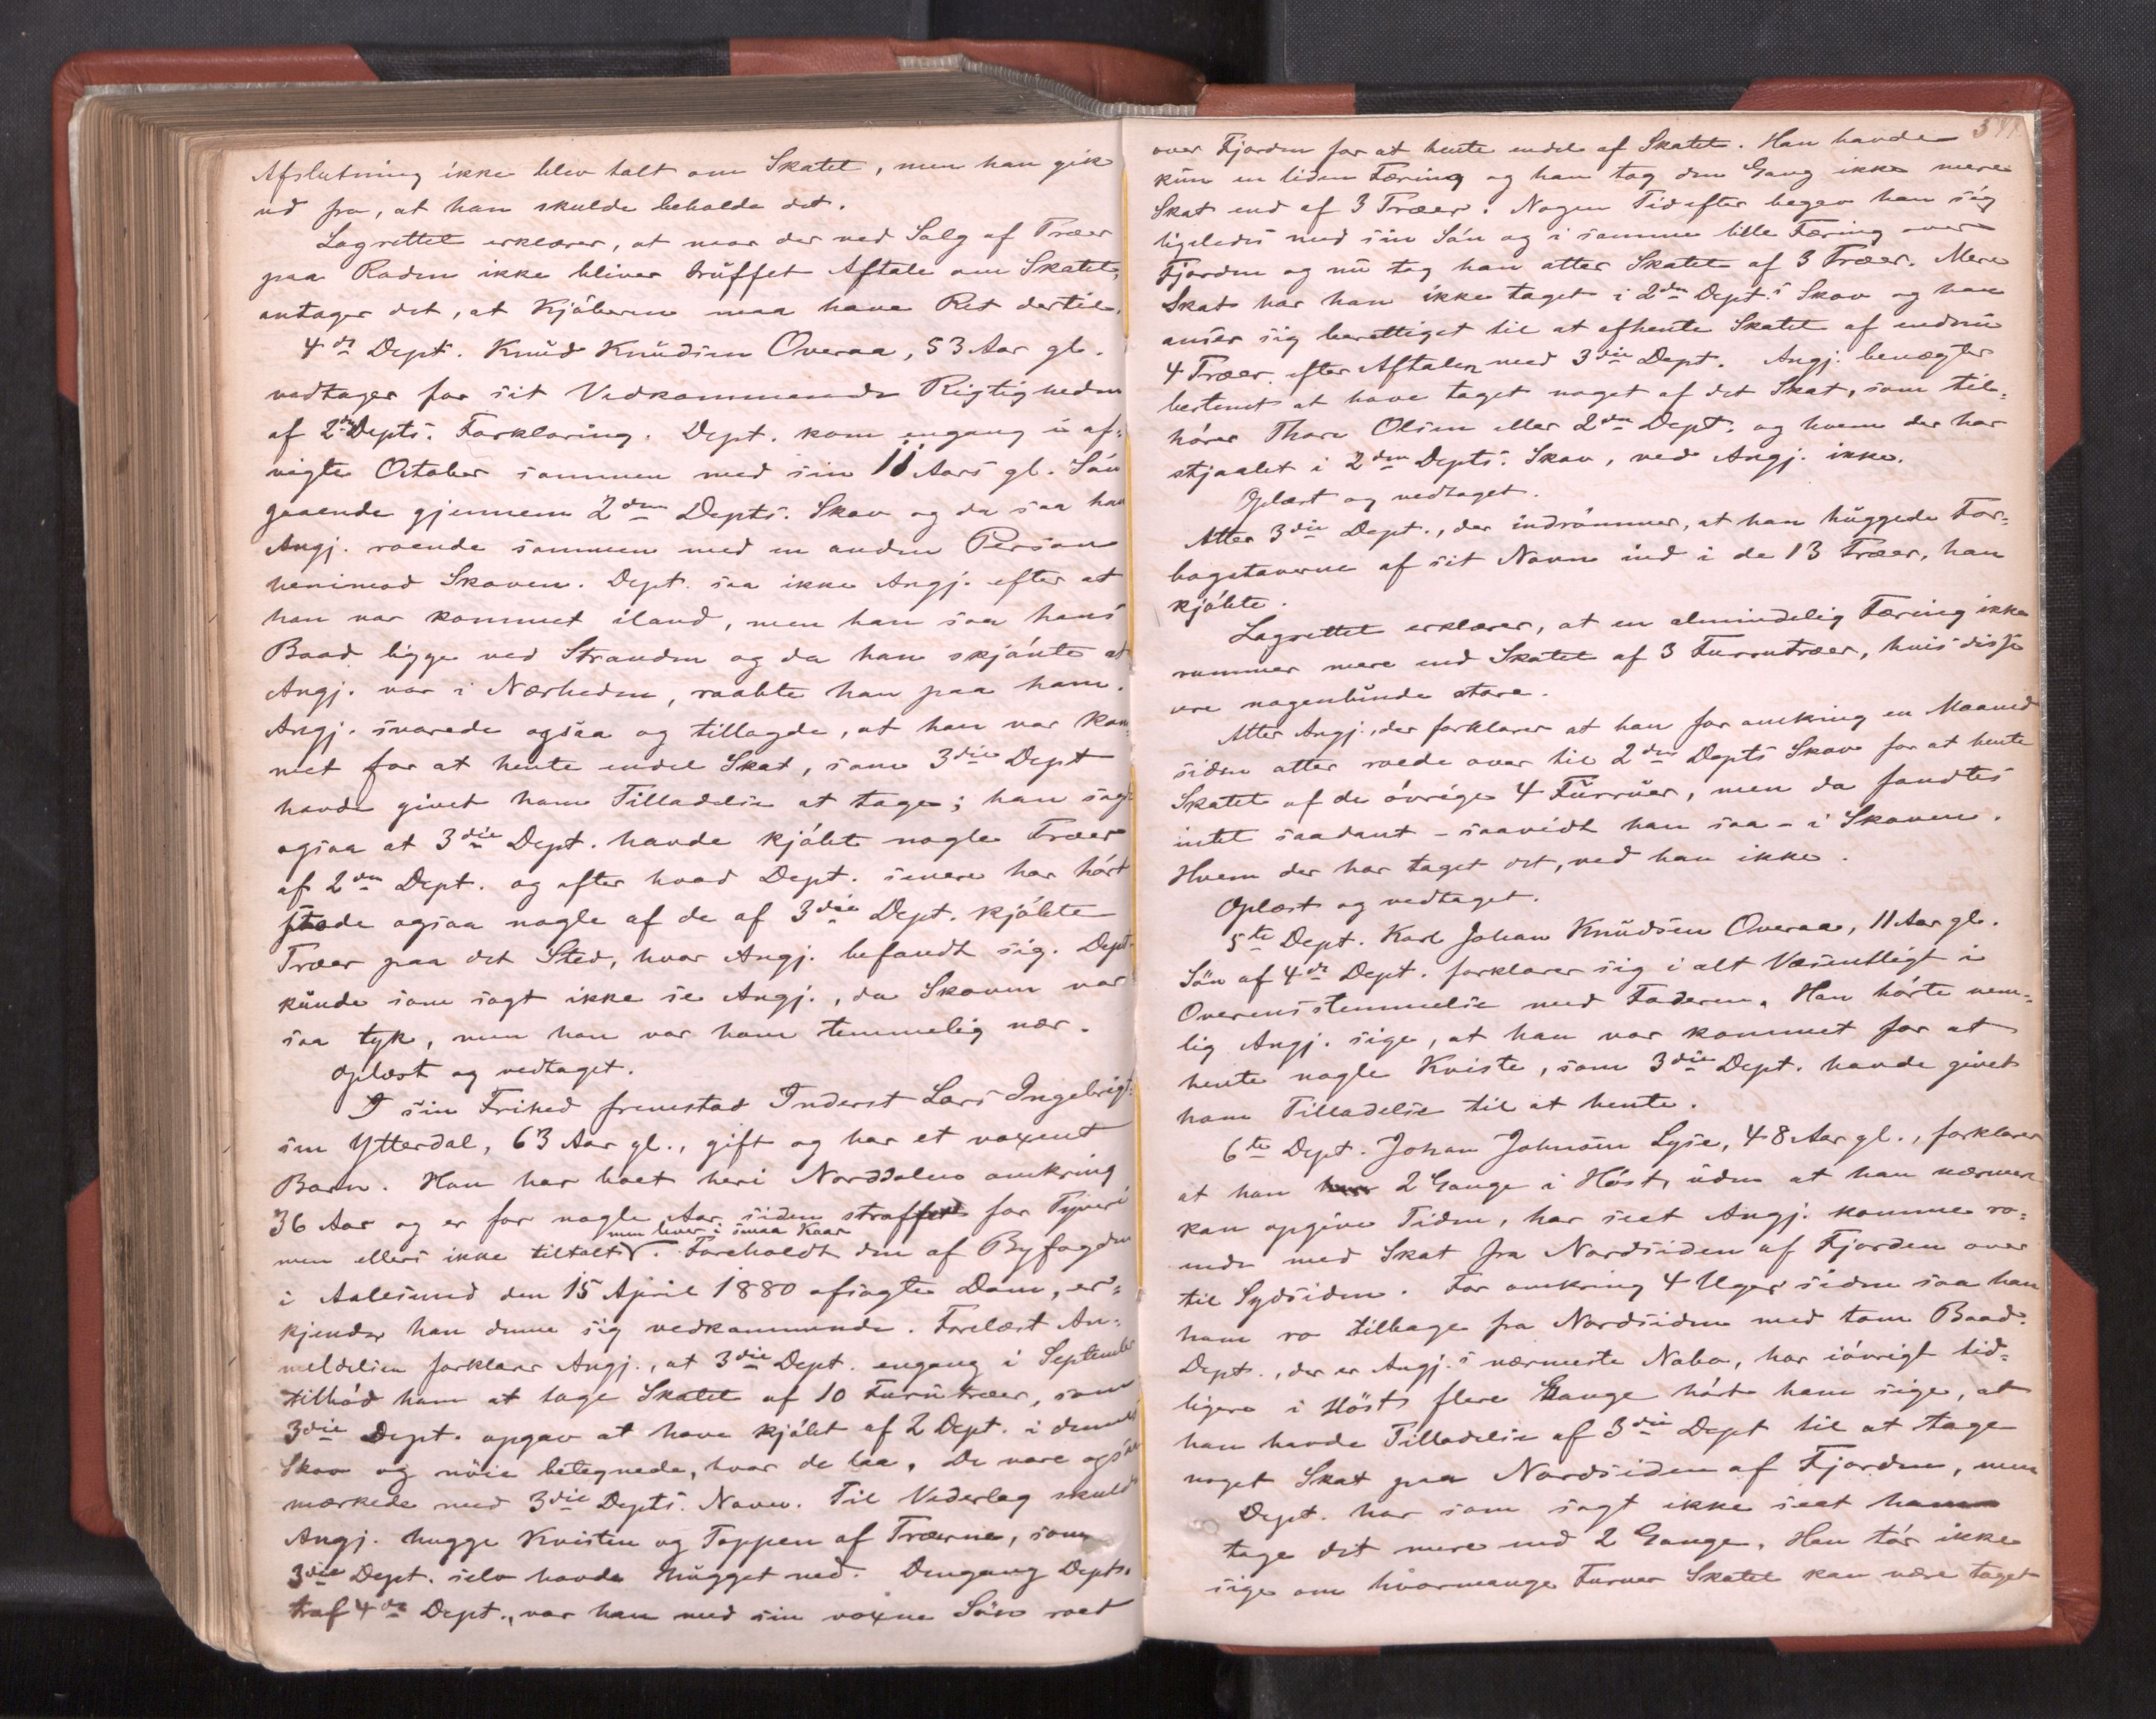 Afslutning ikke blev talt om Skatet, men han gik
ud fra, at han skulde beholde det.
Lagrettet erklærer, at naar der ved Salg af Træer
paa Roden ikke bliver truffet Aftale om Skatet,
antages det, at Kjøberen maa have Ret dertil.
4de Dept. Knud Knudsen Overaa, 53 Aar gl.
vedtager for sit Vedkommende Rigtigheden
af 2den Depts. Forklaring. Dept. kom engang i af-
vigte October sammen med sin 11 Aars gl. Søn
gaaende gjennem 2den Depts. Skov og da saa han
Angj. roende sammen med en anden Person
henimod Skoven. Dept. saa ikke Angj. efter at
han var kommet iland, men han saa hans
Baad ligge ved Stranden og da han skjønte at
Angj. var i Nærheden, raabte han paa ham.
Angj. svarede ogsaa og tillagde, at han var kom-
met for at hente endel Skat, som 3die Dept
havde givet ham Tilladelse at tage; han sag-
ogsaa at 3die Dept. havde kjøbt nogle Træer
af 2den Dept. og efter hvad Dept. senere har hørt
stode ogsaa nogle af de af 3die Dept. kjøbte
Træer paa det Sted, hvor Angj. befandt sig. Dept.
kunde som sagt ikke se Angj., da Skoven var
saa tyk, men han var ham temmelig nær.
Oplæst og vedtaget.
I sin Frihed fremstod Inderst Lars Ingebrigt-
sen Ytterdal, 63 Aar gl., gift og har et voxent
Barn. Han har boet heri Norddalen omkring
36 Aar og er for nogle Aar siden straffet for Tyveri
men lever i smaa Kaar
men ellers ikke tiltalt. Foreholdt den af Byfogden
i Aalesund den 15 April 1880 afsagte Dom, er-
kjender han denne sig vedkommende. Forelæst An-
meldelsen forklarer Angj., at 3die Dept. engang i September
tilbød ham at tage Skatet af 10 Furutræer, som
3die Dept. opgav at have kjøbt af 2 Dept. i dennes
Skov og nøie betegnede, hvor de laa. De vare ogsaa
mærkede med 3die Depts. Navn. Til Vederlag skulde
Angj. hugge Kvisten og Toppen af Træerne, som
3die Dept. selv havde hugget ned. Dengang Depts.
traf 4de Dept., var han med sin voxne Søn roet
541
over Fjorden for at hente endel af Skatet. Han havde
kun en liden Færing og han tog den Gang ikke mere
Skat end af 3 Træer. Nogen Tid efter begav han sig
ligeledes med sin Søn og i samme lille Færing over
Fjorden og nu tog han atter Skatet af 3 Træer. Mere
Skat har han ikke taget i 2den Dept.s Skov og han
anser sig berettiget til at afhente Skatet af endnu
4 Træer efter Aftalen med 3die Dept. Angj. benægter
bestemt at have taget noget af det Skat, som til-
hører Thore Olsen eller 2den Dept. og hvem der har
stjaalet i 2den Depts. Skov, ved Angj. ikke.
Oplæst og vedtaget.
Atter 3die Dept., der indrømmer, at han huggede For-
bogstaverne af sit Navn ind i de 13 Træer, han
kjøbte.
Lagrettet erklærer, at en almindelig Færing ikke
rummer mere end Skatet af 3 Furutræer, hvis disse
ere nogenlunde store.
Atter Angj., der forklarer at han for omkring en Maaned
siden atter roede over til 2den Depts Skov for at hente
Skatet af de øvrige 4 Furuer, men da fandtes
intet saadant - saavidt han saa - i Skoven.
Hvem der har taget det, ved han ikke.
Oplæst og vedtaget.
5te Dept. Karl Johan Knudsen Overaa, 11 Aar gl.
Søn af 4de Dept. forklarer sig i alt Væsentligt i
Overensstemmelse med Faderen. Han hørte nem-
lig Angj. sige, at han var kommet for at
hente nogle Kviste, som 3die Dept. havde givet
ham Tilladelse til at hente.
6te Dept. Johan Johnsen Lyse, 48 Aar gl., forklarer
at han 2 Gange i Høst, uden at han nærmere
kan opgive Tiden, har seet Angj. komme ro-
ende med Skat fra Nordsiden af Fjorden over
til Sydsiden. For omkring 4 Uger siden saa han
ham ro tilbage fra Nordsiden med tom Baad.
Dept., der er Angj.s nærmeste Nabo, har iøvrigt tid-
ligere i Høst flere Gange hørt ham sige, at
han havde Tilladelse af 3die Dept til at tage
noget Skat paa Nordsiden af Fjorden, men
Dept. har som sagt ikke seet ham
tage det mere end 2 Gange. Han tør ikke
sige om hvormange Furuer Skatet kan være taget